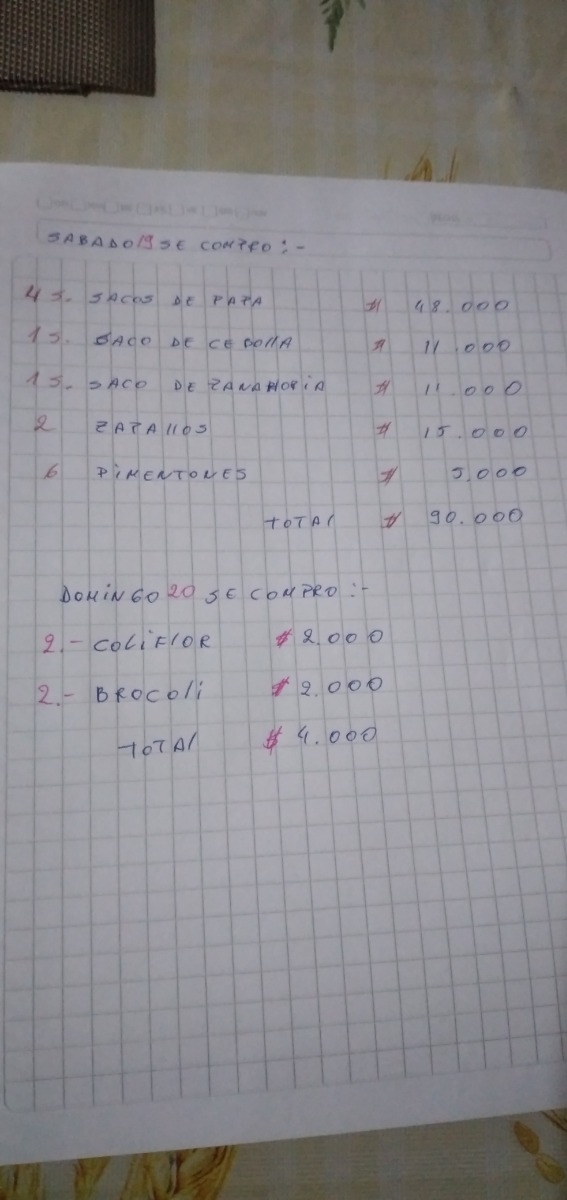 SABADO 19 SE COMPRO :-
4 S. SACOS DE PAPA $ 48.000
1 S. SACO DE CEBOllA $ 11.000
1 S. SACO DE ZANAHORIA $ 11.000
2 ZAPAllOS $ 15.000
6 PIMENTONES $ 5.000
TOTAl $ 90.000
DOMINGO 20 SE COMPRO :-
2.- COLIFlOR $ 2.000
2.- BROCOli $ 2.000
TOTAl $ 4.000